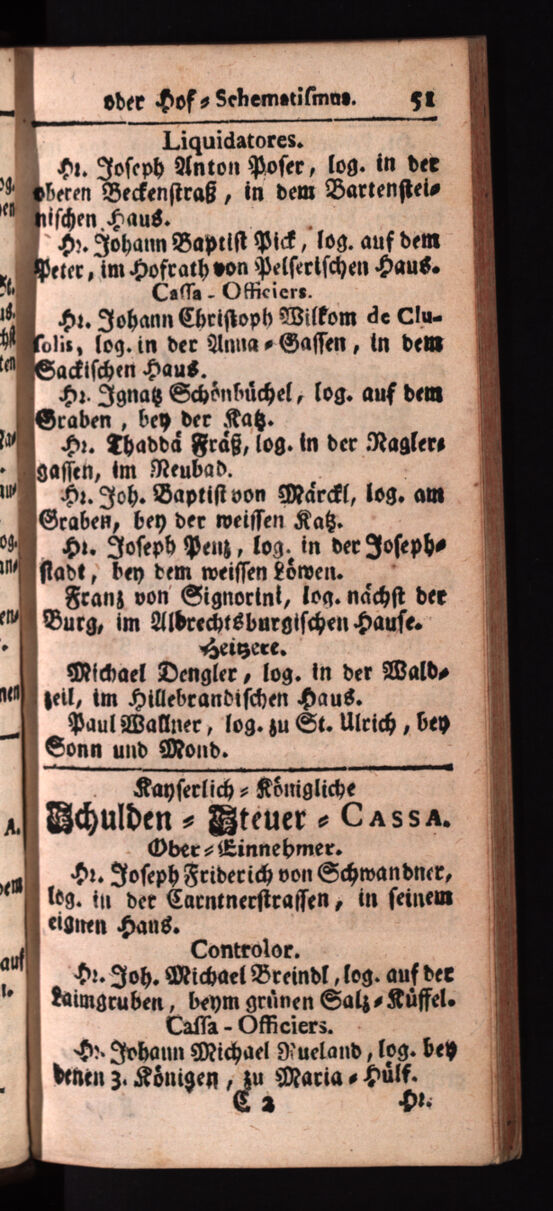 oder Hof-Schematismus. 51
Liquidatores.
Hr. Joseph Anton Poser, log. in der
oberen Beckenstraß, in dem Bartenstei-
nischen Haus.
Hr. Johann Baptist Pick, log. auf dem
Peter, im Hofrath von Pelserischen Haus.
Cassa-Officiers.
Hr. Johann Christoph Wilkom de Clu-
solis, log. in der Anna-Gassen, in dem
Sackischen Haus.
Hr. Ignatz Schönbüchel, log. auf dem
Graben, bey der Katz.
Hr. Thaddä Fräß, log. in der Nagler-
gassen, im Neubad.
Hr. Joh. Baptist von Märckl, log. am
Graben, bey der weissen Katz.
Hr. Joseph Penz, log. in der Joseph-
stadt, bey dem weissen Löwen.
Franz von Signorini, log. nächst der
Burg, im Albrechtsburgischen Hause.
Heitzere.
Michael Dengler, log. in der Wald-
zeil, im Hillebrandischen Haus.
Paul Wallner, log. zu St. Ulrich, bey
Sonn und Mond.
Kayserlich-Königliche
Schulden-Steuer-CASSA.
Ober-Einnehmer.
Hr. Joseph Friderich von Schwandner,
log. in der Carntnerstrassen, in seinem
eignen Haus.
Controlor.
Hr. Joh. Michael Breindl, log. auf der
Laimgruben, beym grünen Salz-Küffel.
Cassa-Officiers.
Hr. Johann Michael Rueland, log. bey
denen 3. Königen, zu Maria-Hülf.
C 2 Hr.